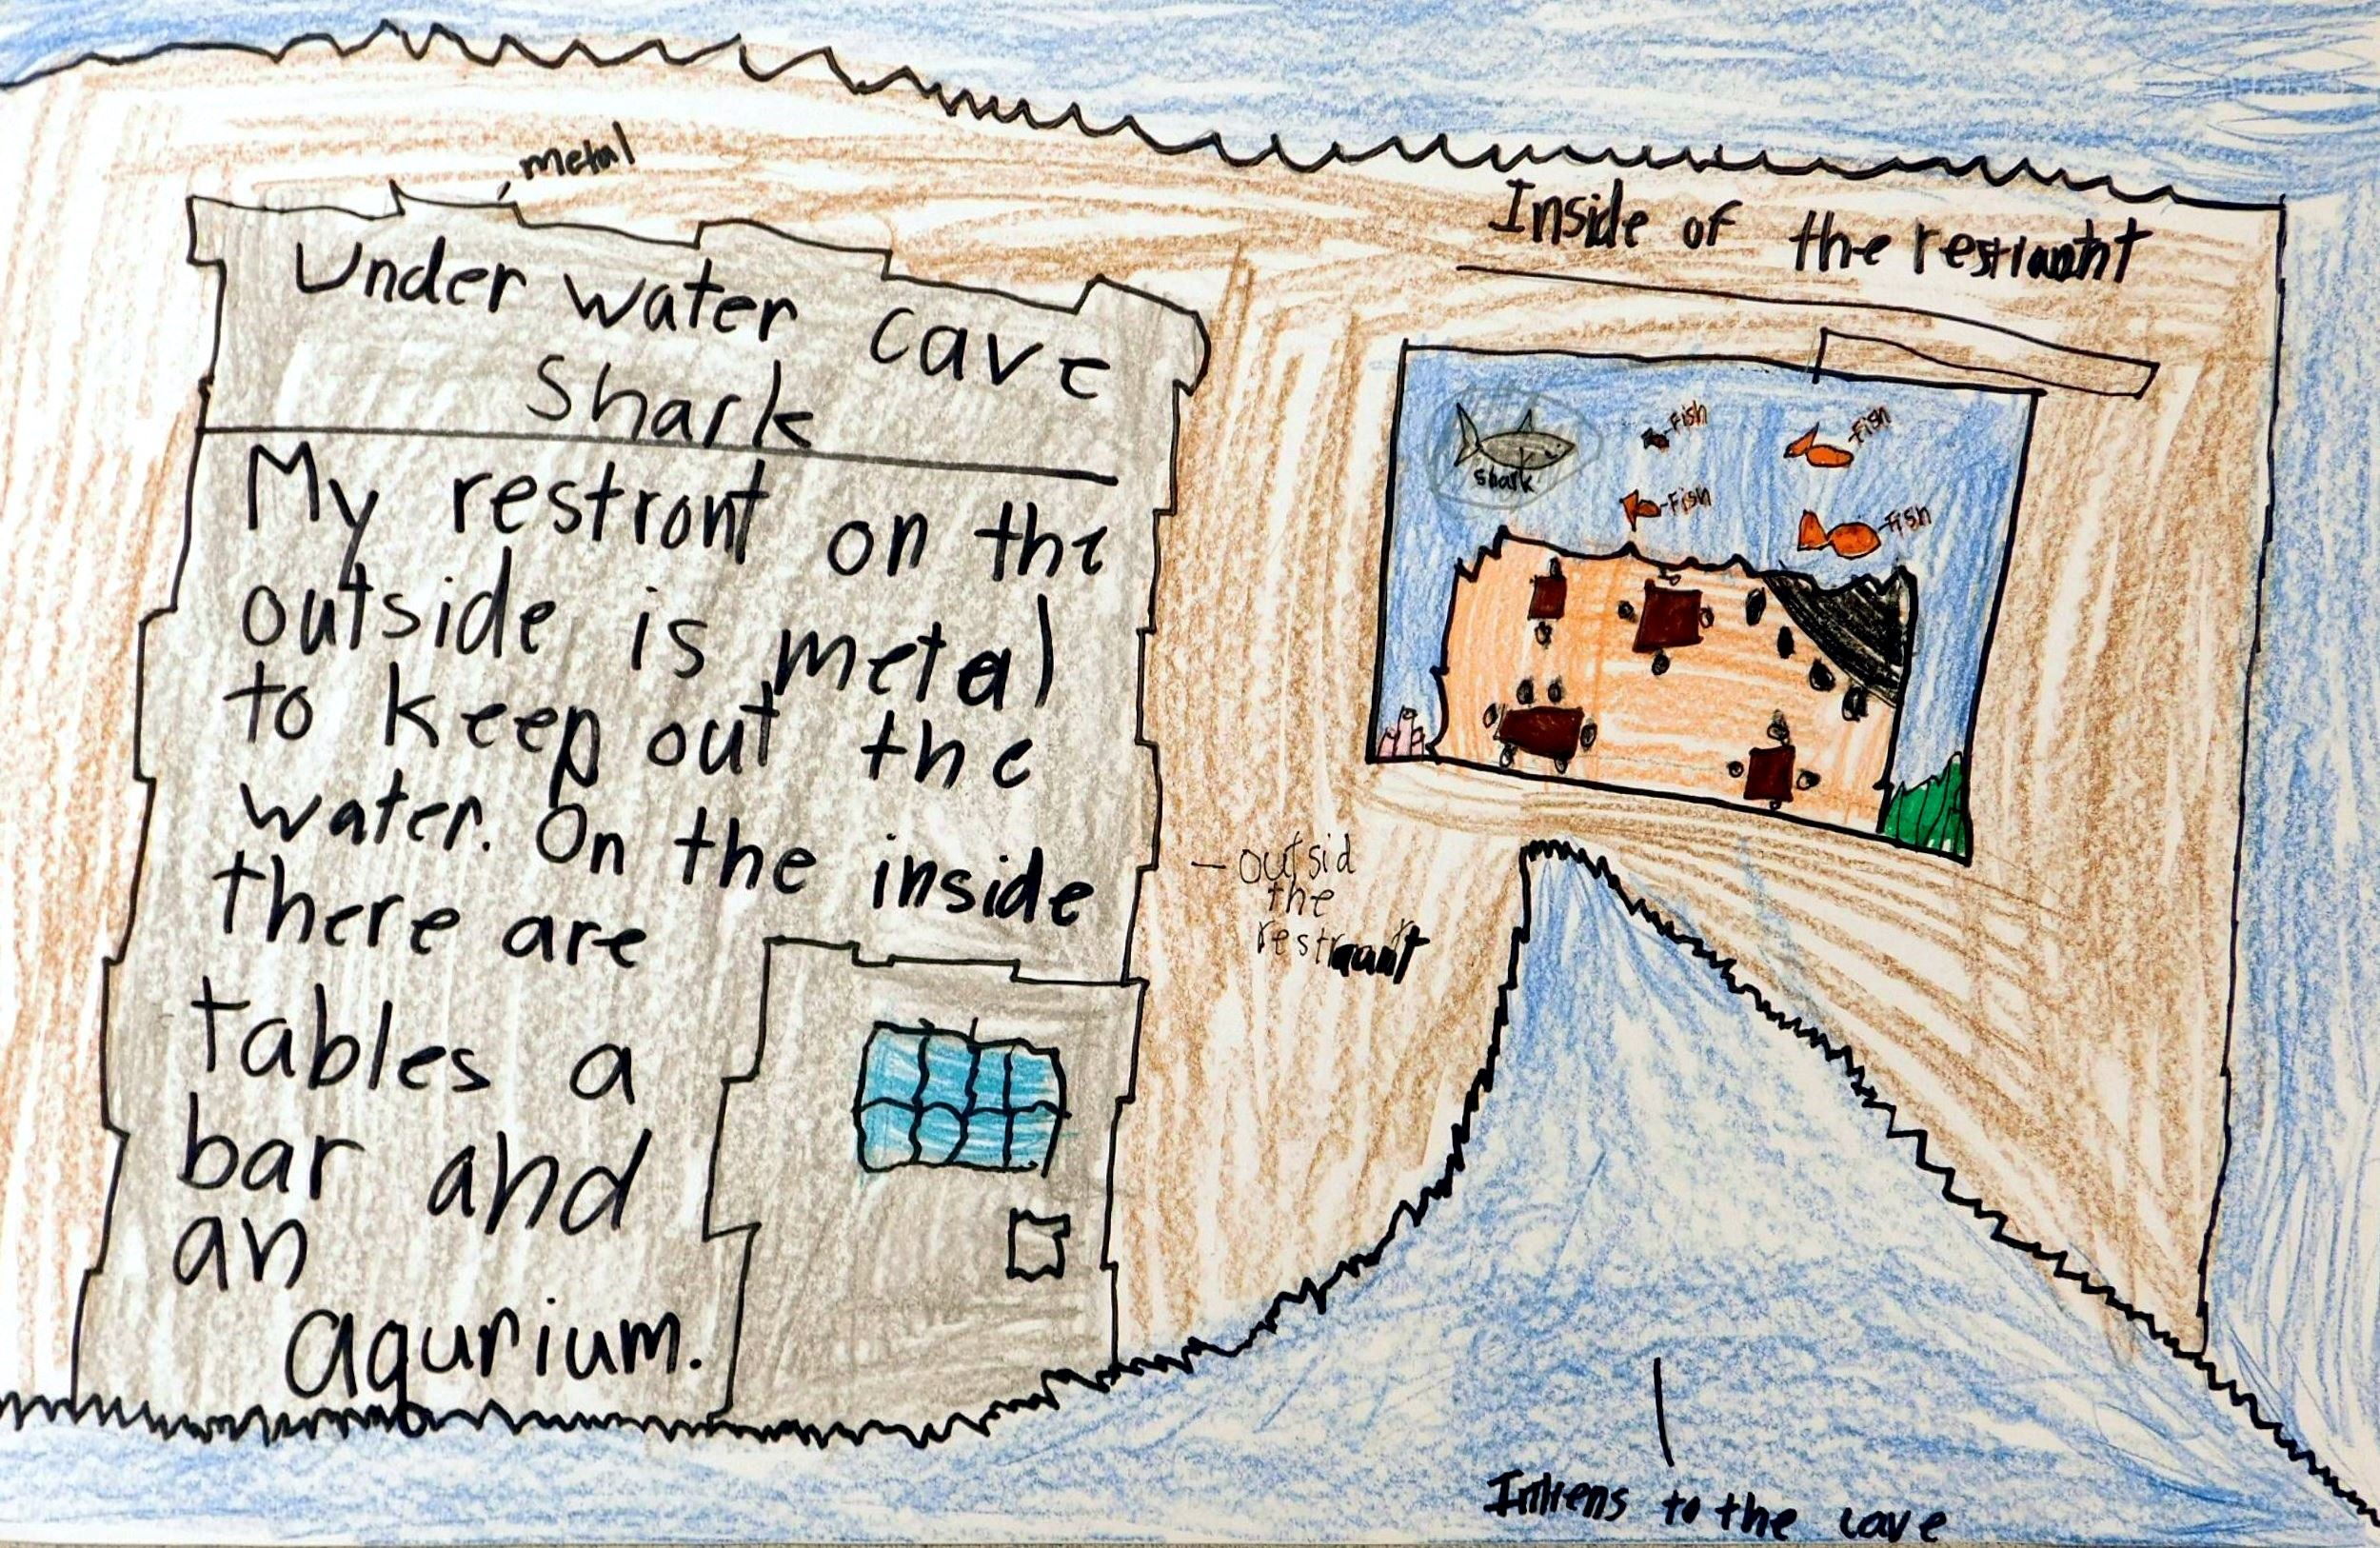 metal
Under water cave
Shark
My restront on the
outside is metal
to keep out the
water. On the inside
there are
tables a
bar and
an
aqurium.
Inside of the restraont
shark
-Fish
-Fish
-Fish
-Fish
- outsid
the
restraunt
Intrens to the cave